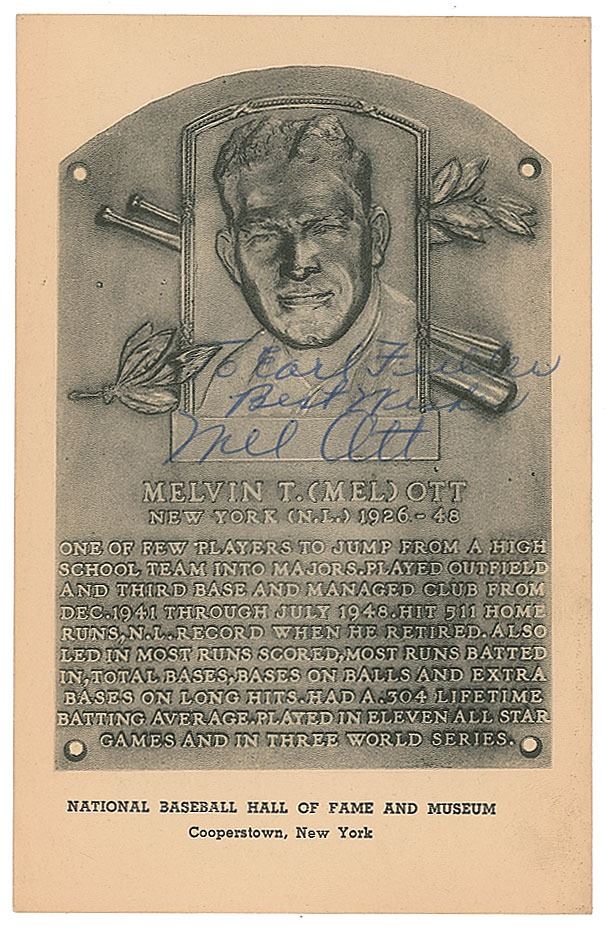 To Earl
Best Wishes
Mel Ott
MELVIN T. (MEL) OTT
NEW YORK (N.L.) 1926.-48
ONE OF FEW PLAYERS TO JUMP FROM A HIGH
SCHOOL TEAM INTO MAJORS. PLAYED OUTFIELD
AND THIRD BASE AND MANAGED CLUB FROM
DEC. 1941 THROUGH JULY 1948. HIT 511 HOME
RUNS, N.L. RECORD WHEN HE RETIRED. ALSO
LED IN MOST RUNS SCORED, MOST RUNS BATTED
IN, TOTAL BASES, BASES ON BALLS AND EXTRA
BASES ON LONG HITS. HAD A .304 LIFETIME
BATTING AVERAGE. PLAYED IN ELEVEN ALL STAR
GAMES AND IN THREE WORLD SERIES.
NATIONAL BASEBALL HALL OF FAME AND MUSEUM
Cooperstown, New York